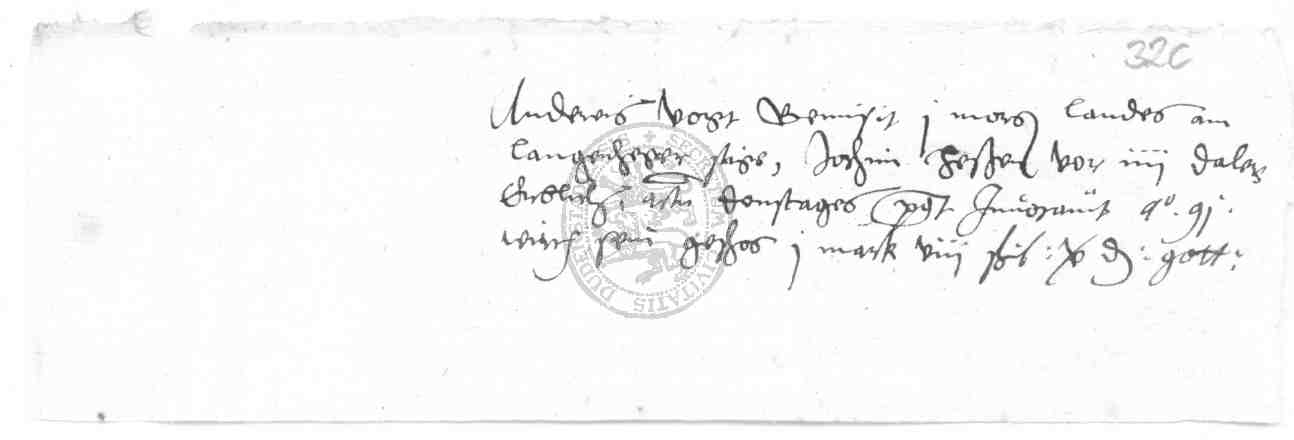 32c
Andereis Vogt Remisit j morg landes am
langenheger stige, Jochim hessen vor iiii daler
Erblich, actu donstages post Invocavit a° . 91 .
wirth sein geschos j mark viii ssl : x d : gott :
SECRETVM CIVITATIS DUDERST